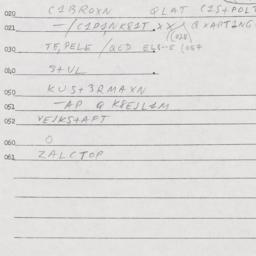 020 C1BROXN QLAT C1S+POLT
021 -/C1P1NK81T.XX/QXAPT1NG
(028)
030 TE,PELE /QCD
040 S+VL .
050 KUS+3RMAXN
051 -AP Q K8EJL1M
052 VEJKS+AFT
060 O
061 ZALCTOP